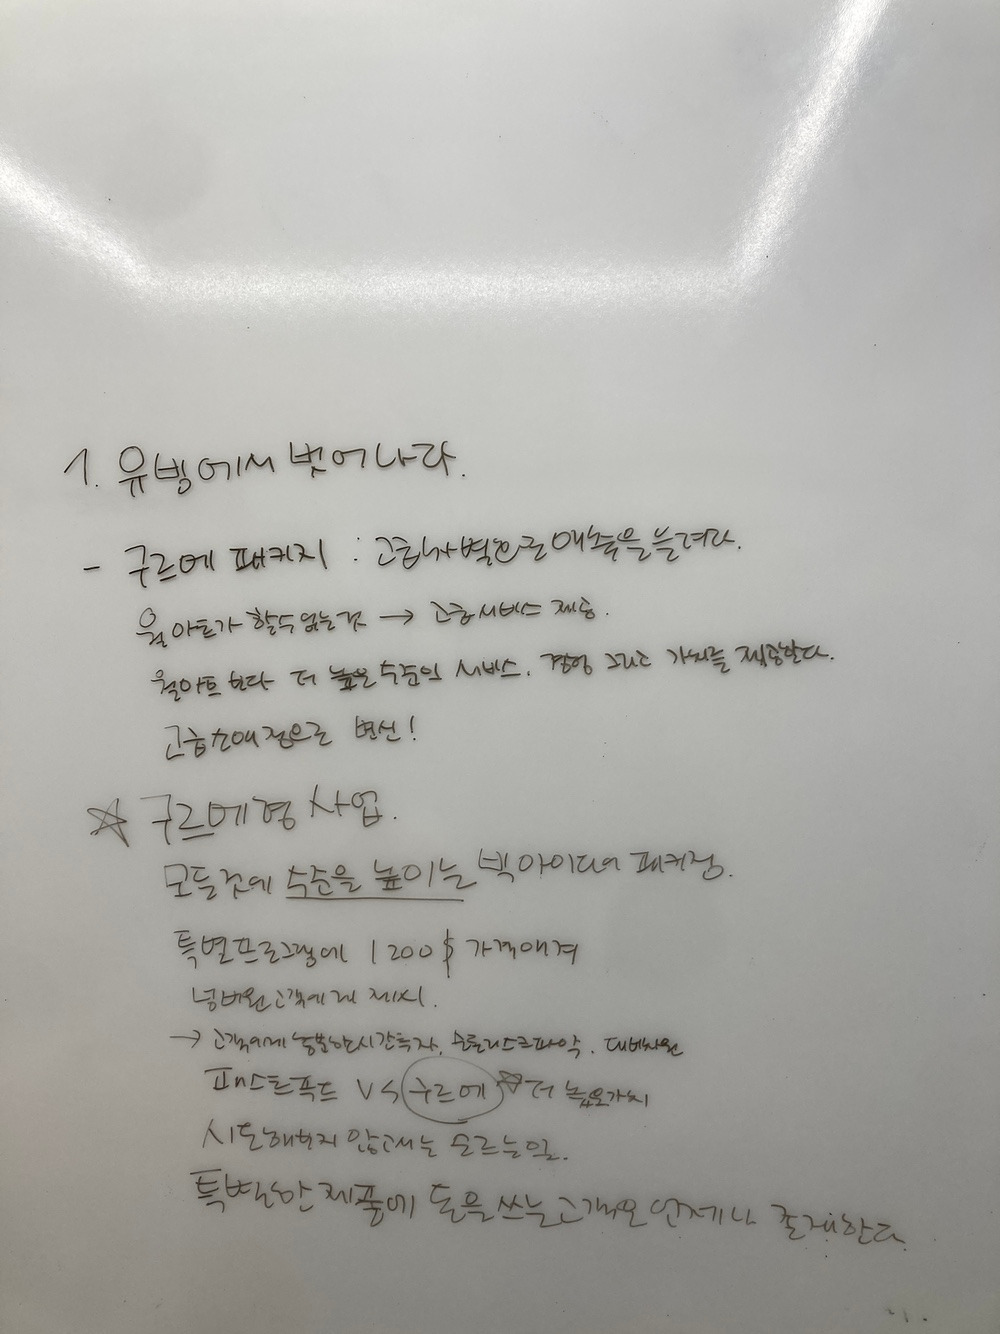 1. 유빙에서 벗어나라.
- 구르메 패키지 : 고급차별화로 매출을 늘려라.
월마트가 할수없는것 → 고급서비스 제공.
월마트 보다 더 높은 수준의 서비스. 경험 그리고 가치를 제공한다.
고급소매점으로 변신!
☆ 구르메형 사업.
모든것에 수준을 높이는 빅아이디어 패키징.
특별프로그램에 1200$ 가격매겨
넘버원고객에게 제시.
→ 고객에게 충분한시간투자, 리스크파악.
패스트푸드 VS 구르메 ☆ 더 높은가치
시도해보지 않고서는 모르는일.
특별한 제품에 돈을 쓰는 고객은 언제나 존재한다.